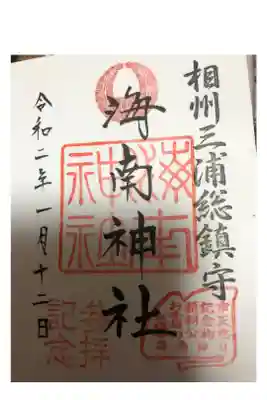 相州三浦総鎮守
海南神社
令和二年一月十二日
海南
神社
参拝
記念